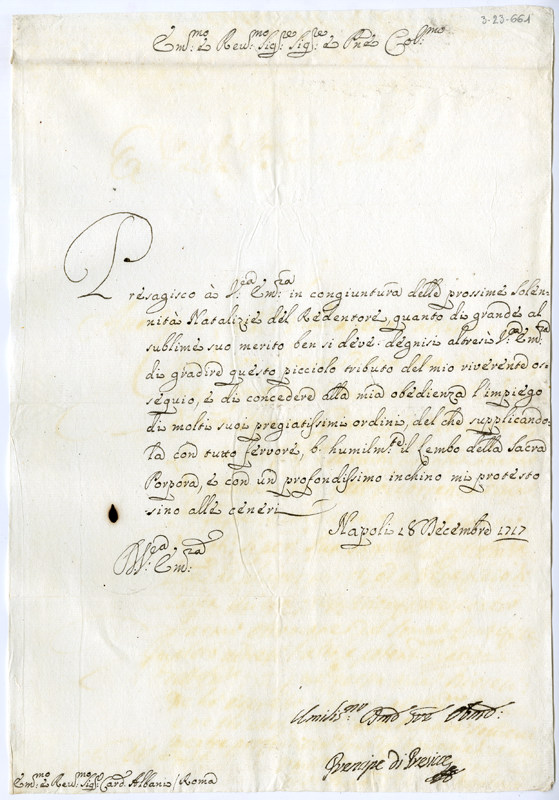 3-23-661
Em:mo e Reu:mo Sig:re Sig:re e Pne Col:mo
Presagisco à V:ra Em:za in congiuntura delle prossime Solen-
nità Natalizie del Redentore, quanto di grande al
sublime suo merito ben si deve: degnisi altresì V:ra Em:za
di gradire questo picciolo tributo del mio riverente os-
sequio, e di concedere alla mia obedienza l'impiego
di molti suoi pregiatissimi ordini, del che supplicando-
la con tutto fervore, b. humilm:te il Lembo della Sacra
Porpora, e con un profondissimo inchino mi protesto
sino alle ceneri
Napoli 18 Decembre 1717
D V:ra Em:za
Umiliss:mo
Prencipe di Presicce
Em:mo e Reu:mo Sig:r Card. Albani / Roma